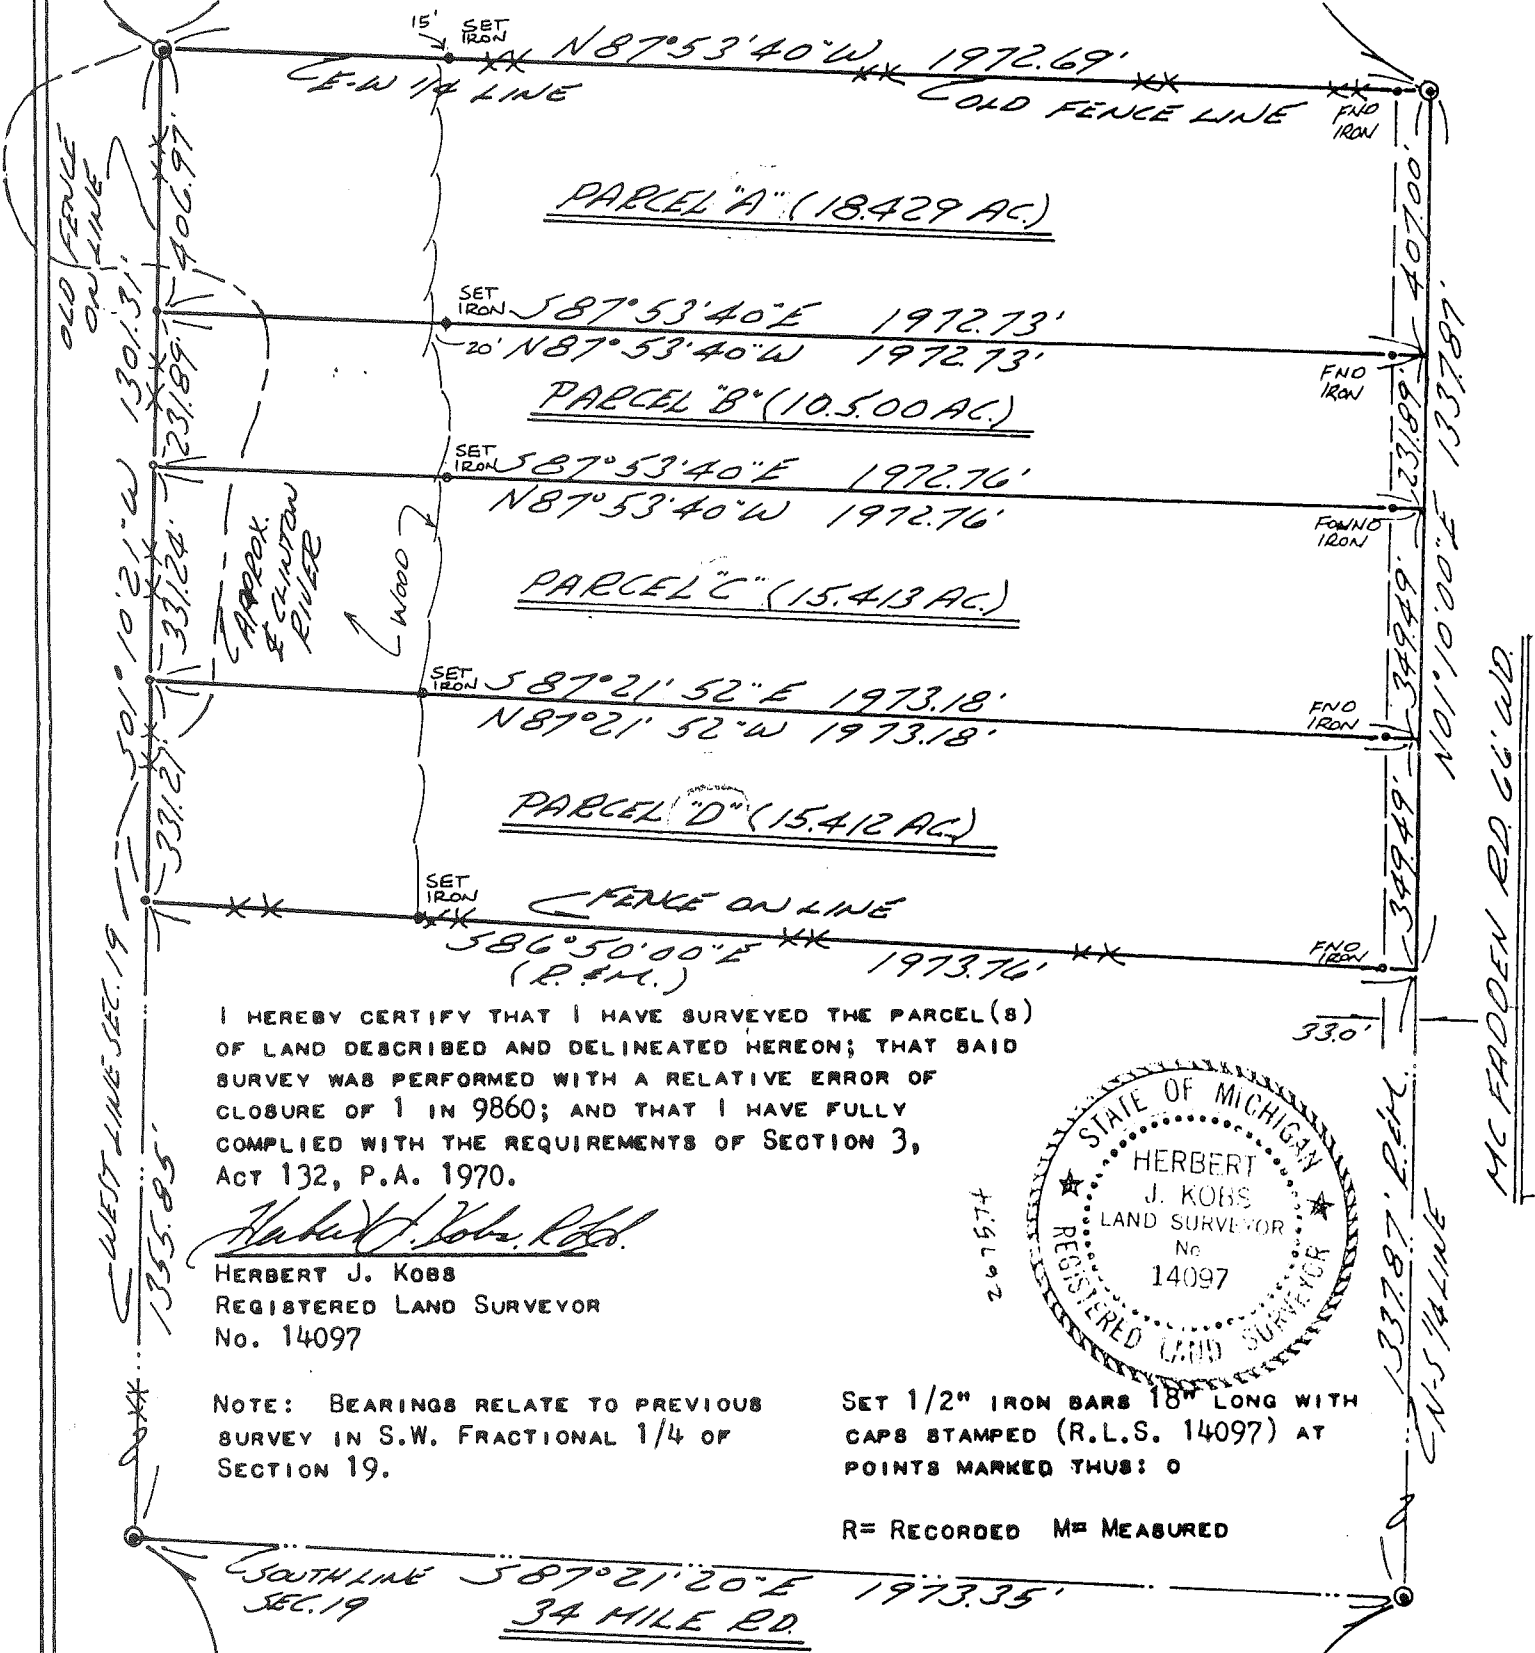 15'
SET
IRON
N87°53'40"W 1972.69'
E-W 1/4 LINE
OLD FENCE LINE
FND
IRON
OLD FENCE
ON LINE
406.97'
407.00'
PARCEL "A" (18.429 AC.)
SET
IRON
S87°53'40"E 1972.73'
20' N87°53'40"W 1972.73'
FND
IRON
S01°10'21"W 1301.31'
231.89'
231.89'
N01°10'00"E 1337.87'
PARCEL "B" (10.500 AC.)
SET
IRON
S87°53'40"E 1972.76'
N87°53'40"W 1972.76'
FOUND
IRON
331.24'
APPROX.
℄ CLINTON
RIVER
WOOD
349.49'
PARCEL "C" (15.413 AC.)
SET
IRON
S87°21'52"E 1973.18'
N87°21'52"W 1973.18'
FND
IRON
331.21'
349.49'
PARCEL "D" (15.412 AC.)
MC FADDEN RD. 66' WD.
SET
IRON
FENCE ON LINE
S86°50'00"E 1973.76'
(R.&M.)
FND
IRON
33.0'
WEST LINE SEC. 19
1355.85'
I HEREBY CERTIFY THAT I HAVE SURVEYED THE PARCEL(S)
OF LAND DESCRIBED AND DELINEATED HEREON; THAT SAID
SURVEY WAS PERFORMED WITH A RELATIVE ERROR OF
CLOSURE OF 1 IN 9860; AND THAT I HAVE FULLY
COMPLIED WITH THE REQUIREMENTS OF SECTION 3,
ACT 132, P.A. 1970.
Herbert J. Kobs, R.L.S.
HERBERT J. KOBS
REGISTERED LAND SURVEYOR
No. 14097
STATE OF MICHIGAN
HERBERT
J. KOBS
LAND SURVEYOR
No
14097
REGISTERED LAND SURVEYOR
1337.87' R.&M.
N-S 1/4 LINE
NOTE: BEARINGS RELATE TO PREVIOUS
SURVEY IN S.W. FRACTIONAL 1/4 OF
SECTION 19.
SET 1/2" IRON BARS 18" LONG WITH
CAPS STAMPED (R.L.S. 14097) AT
POINTS MARKED THUS: O
R= RECORDED M= MEASURED
SOUTH LINE
SEC. 19
S87°21'20"E 1973.35'
34 MILE RD.